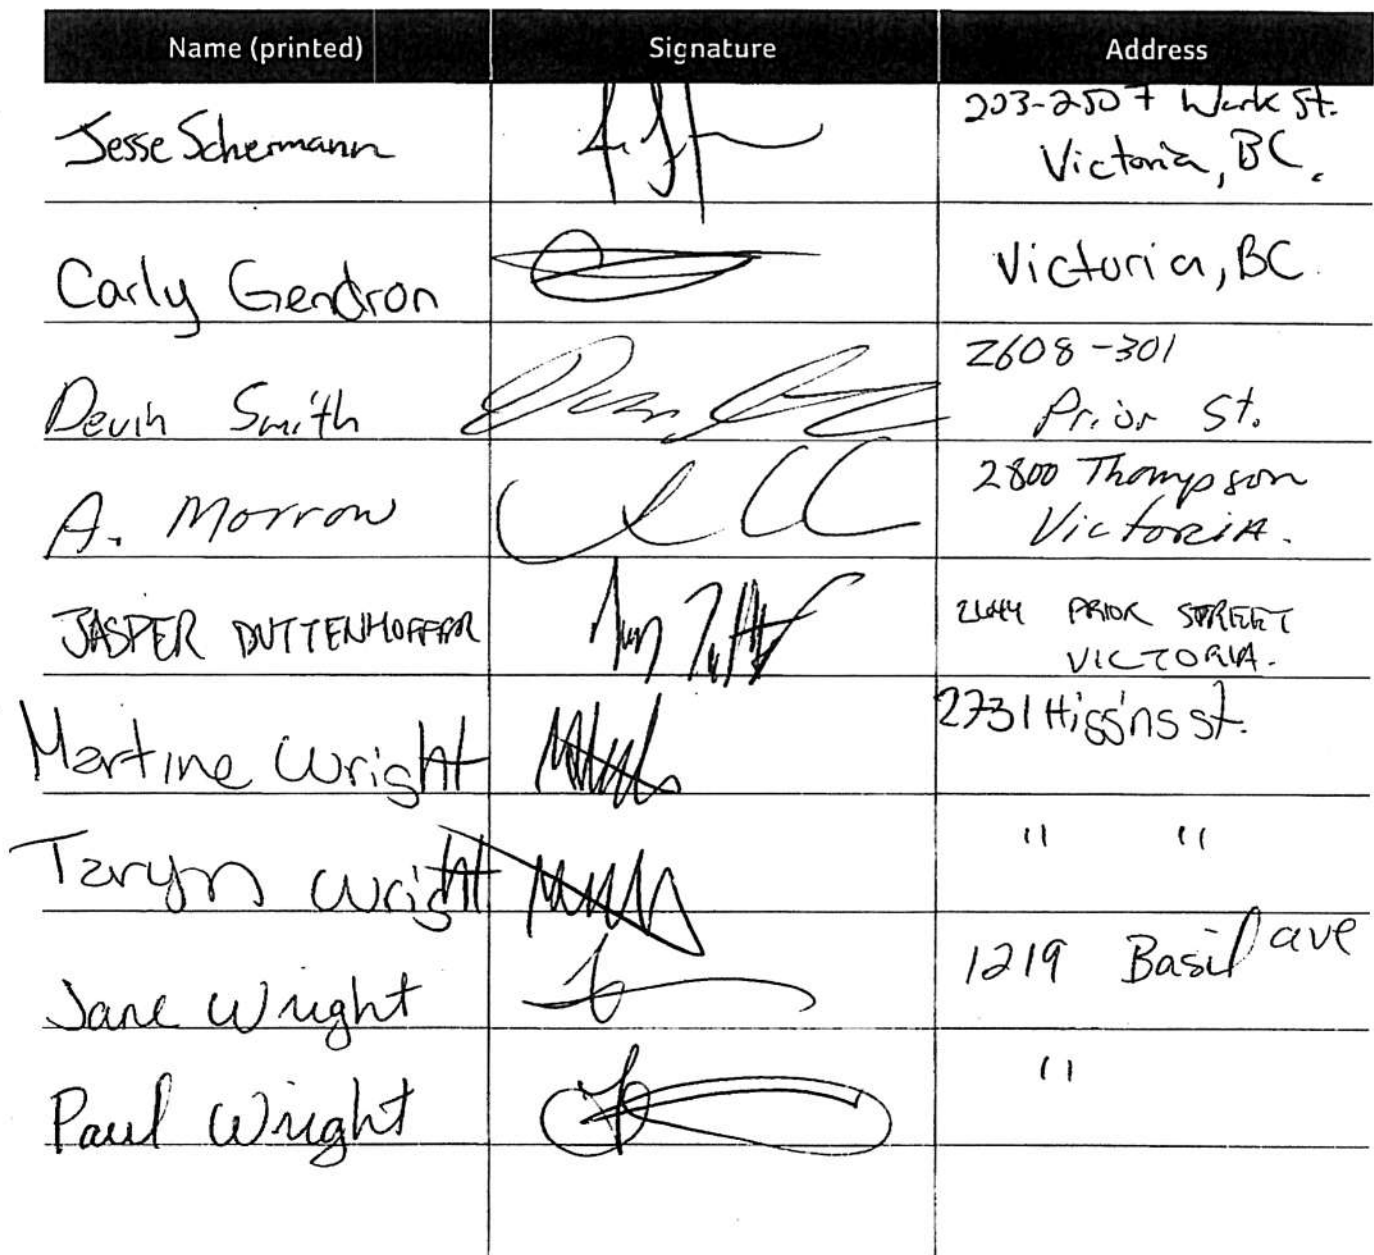 Name (printed) Signature Address
Jesse Schermann 203-2507 Work St.
Victoria, BC.
Carly Gendron Victoria, BC.
2608-301
Devin Smith Prior St.
2800 Thompson
A. Morrow Victoria.
JASPER DUTTENHOFFER 2644 PRIOR STREET
VICTORIA.
Martine Wright 2731 Higgins st.
Taryn Wright " "
Jane Wright 1219 Basil ave
Paul Wright "